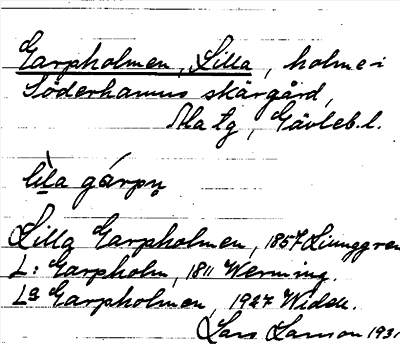 Garpholmen, Lilla, holme i
Söderhamns skärgård,
Ala tg, Gävleb. l.
lìla gárpn̥
Lilla Garpholmen, 1857 Ljunggren
L: Garpholm, 1811 Werming.
La Garpholmen, 1927 Widde.
Lars Larson 1931